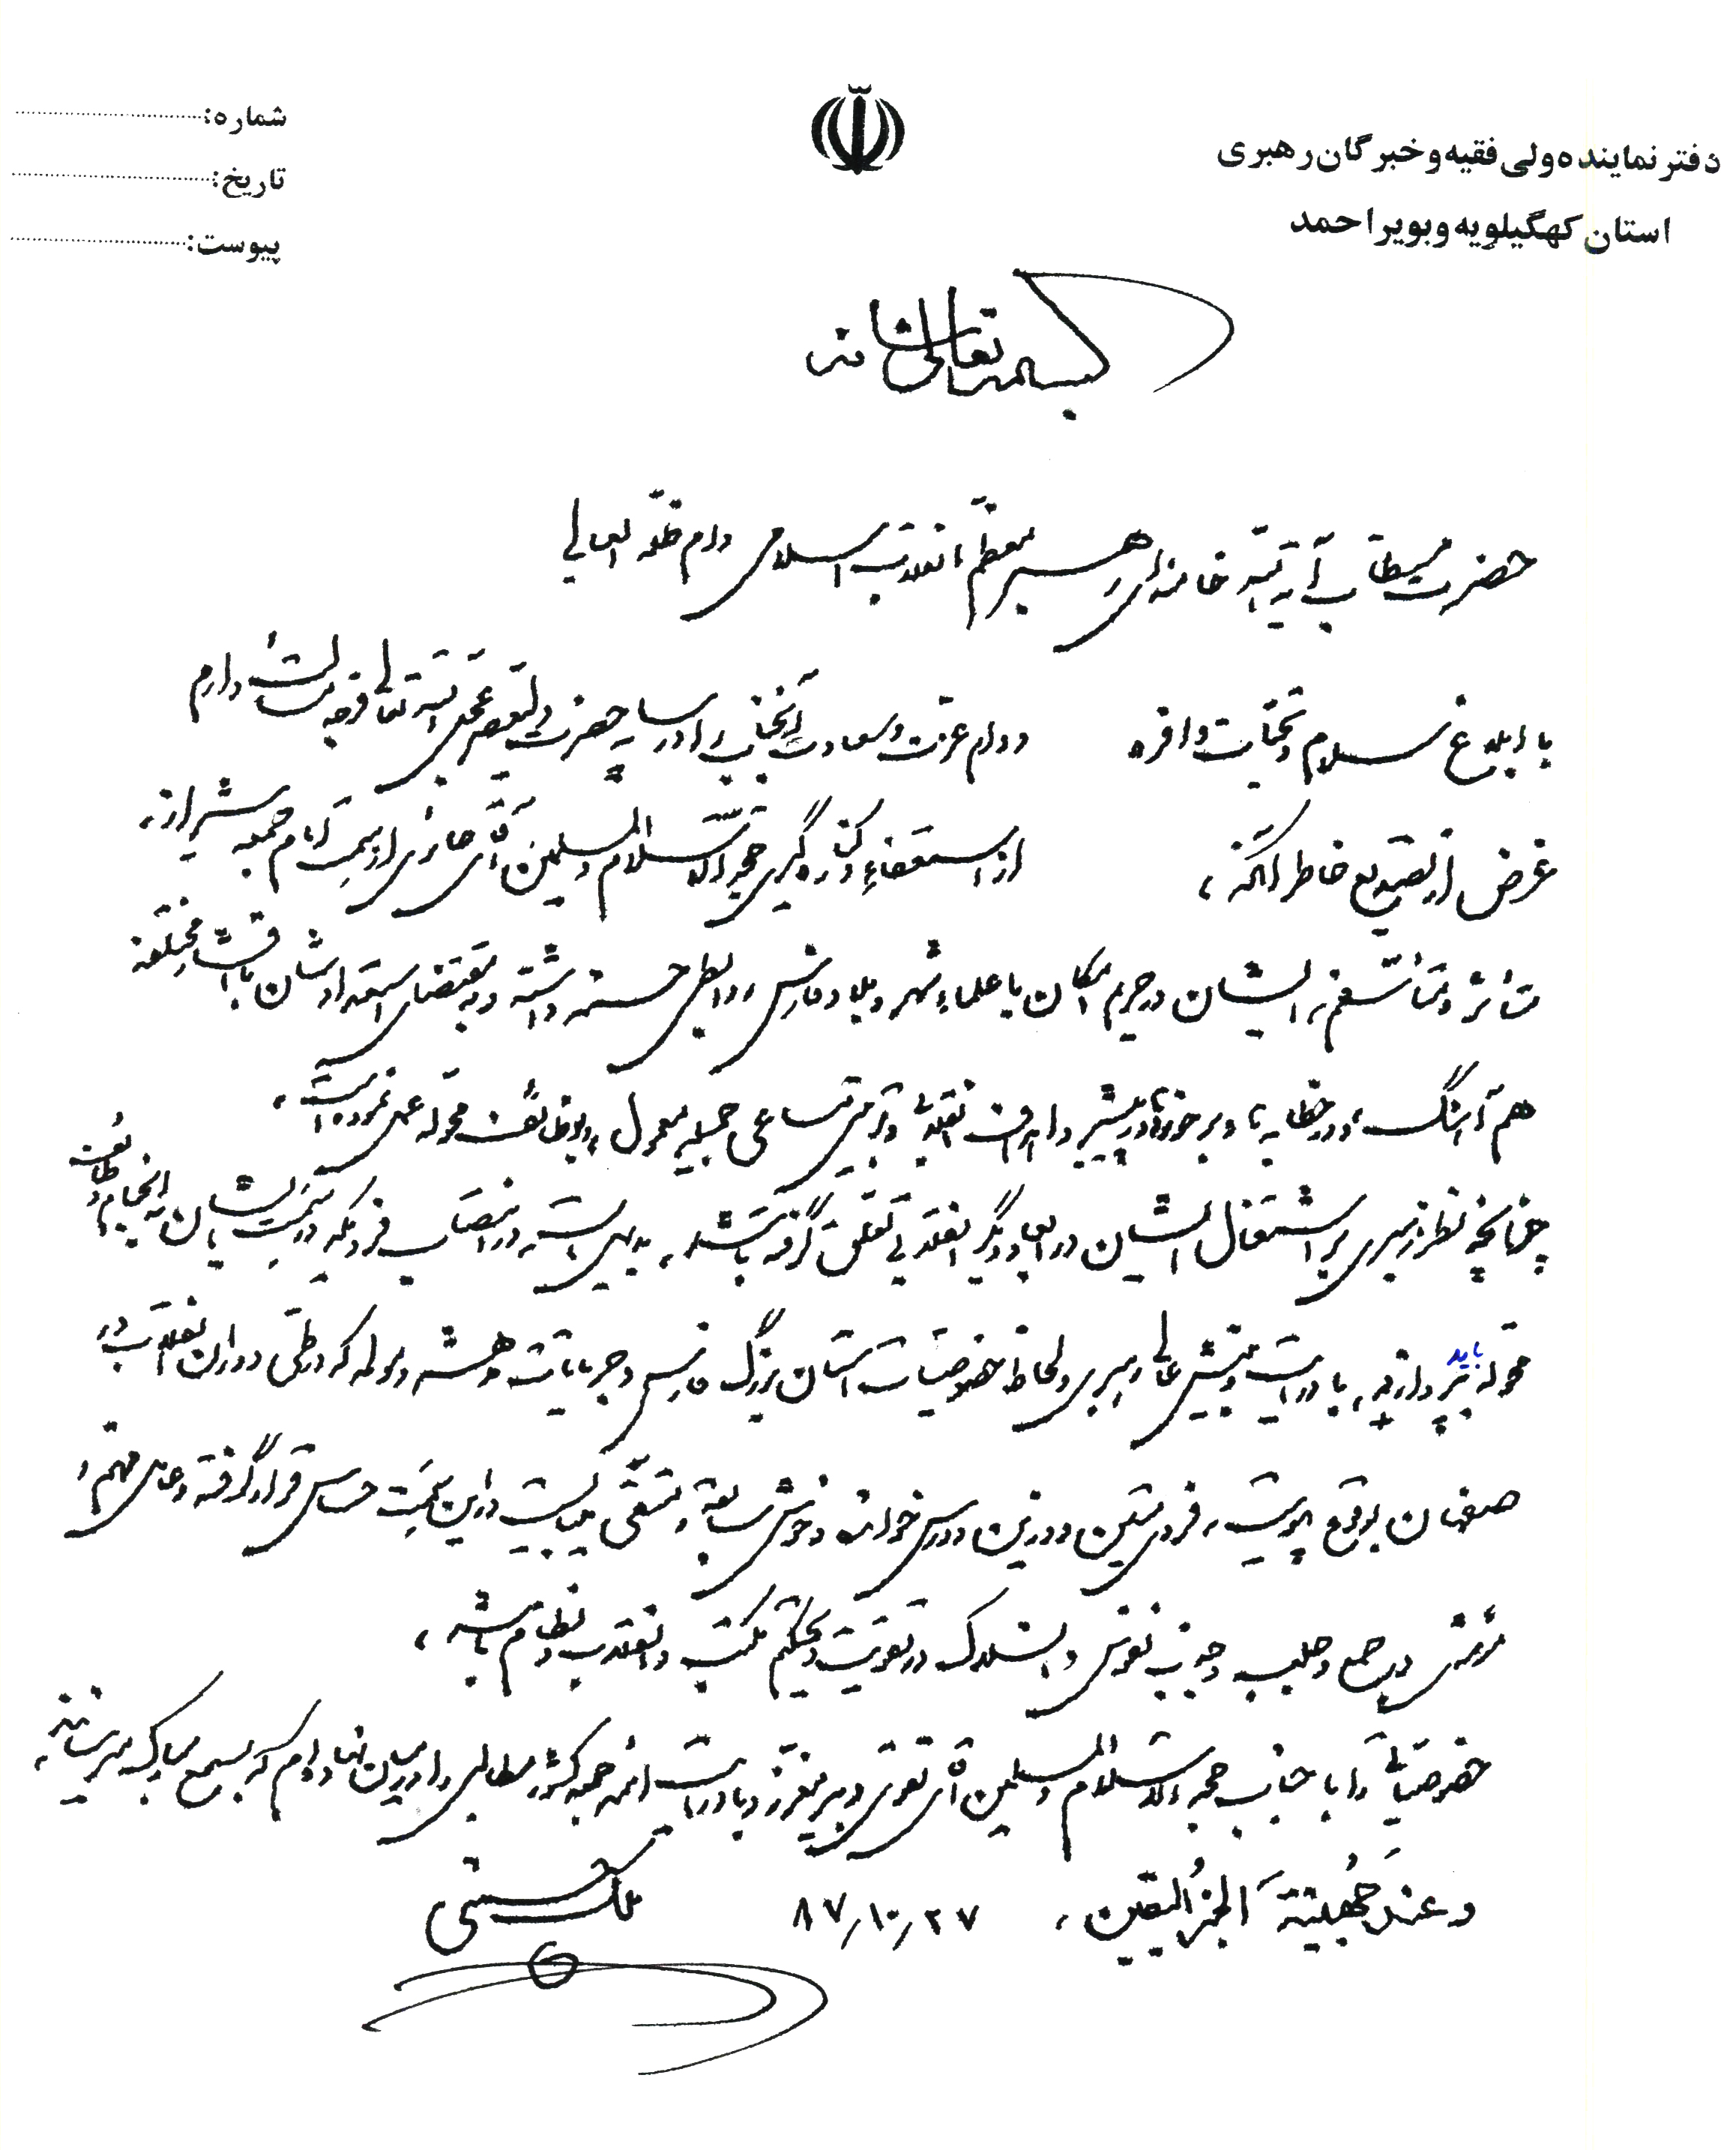 دفتر نماینده ولی فقیه و خبرگان رهبری
استان کهگیلویه و بویراحمد
شماره:
تاریخ:
پیوست:
بسمه تعالی شانه
حضرت مستطاب آیة الله خامنه‌ای رهبر معظم انقلاب اسلامی دام ظله العالی
با ابلاغ سلام و تحیات وافره و دوام عزت و سعادت آنجناب را در سایه حضرت ولیعصر عجل الله تعالی فرجه مسألت دارم
غرض از تصدیع خاطر آنکه، از استعفاء و کناره‌گیری حجة الاسلام والمسلمین آقای حائری از سمت امام جمعه شیراز،
متأثر و متأسفم، ایشان در حریم امکان با علماء شهر و بلاد فارس روابطی حسنه داشته و به مقتضای استعدادشان با اقشار مختلفه
هم آهنگ، و در خطابه‌ها و برخوردها در پیشبرد اهداف انقلابی و تربیتی مساعی جمیله معمول و بوظائف محوله عمل نموده است،
چنانچه نظر رهبری بر اشتغال ایشان در ابعاد دیگر انقلابی تعلق گرفته باشد، بدیهی است در انتصاب فردیکه در سمت ایشان به انجام وظائف
محوله باید بپردازند، با درایت و بینش عالی رهبری و لحاظ خصوصیات استان بزرگ فارس و جریانات و هسته و که در طی دوران انقلاب در
صفهان بوقوع پیوست، فردی متین و وزین و درس خوانده و خوش سابقه و متقی میبایست در این سمت حساس قرار گرفته و عاملی مهم و
مؤثر در جمع و جلب و جذب نفوس و انسلاک در تقویت و تحکیم مکتب و انقلاب و نظام باشد،
خصوصیاتی را با جناب حجة الاسلام والمسلمین آقای تقوی دبیر متمرکز و با درایت ائمه جمعه کشور مطالبی را در میان نهاده‌ام که بسمع مبارک میرسانند،
و عند جُهینة الخبر الیقین، ۸۷/۱۰/۲۷
ملک حسینی